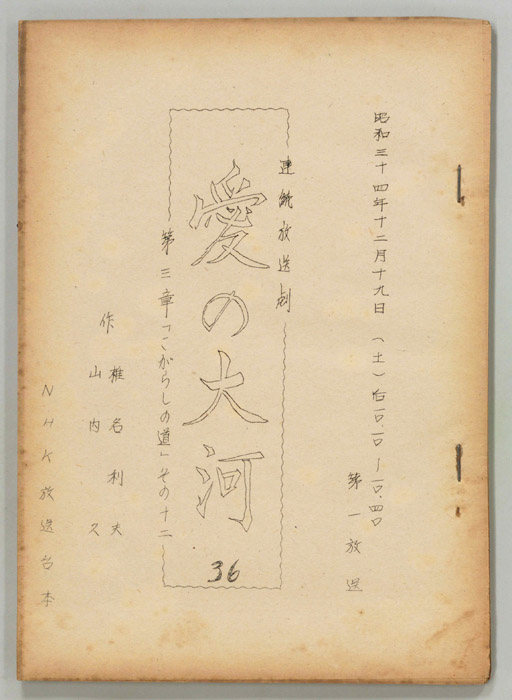 昭和三十四年十二月十九日（土）后一〇.一〇―一〇.四〇
第一放送
連続放送劇
愛の大河
36
第三章「こがらしの道」その十二
作 椎名利夫
山内久
NHK放送台本